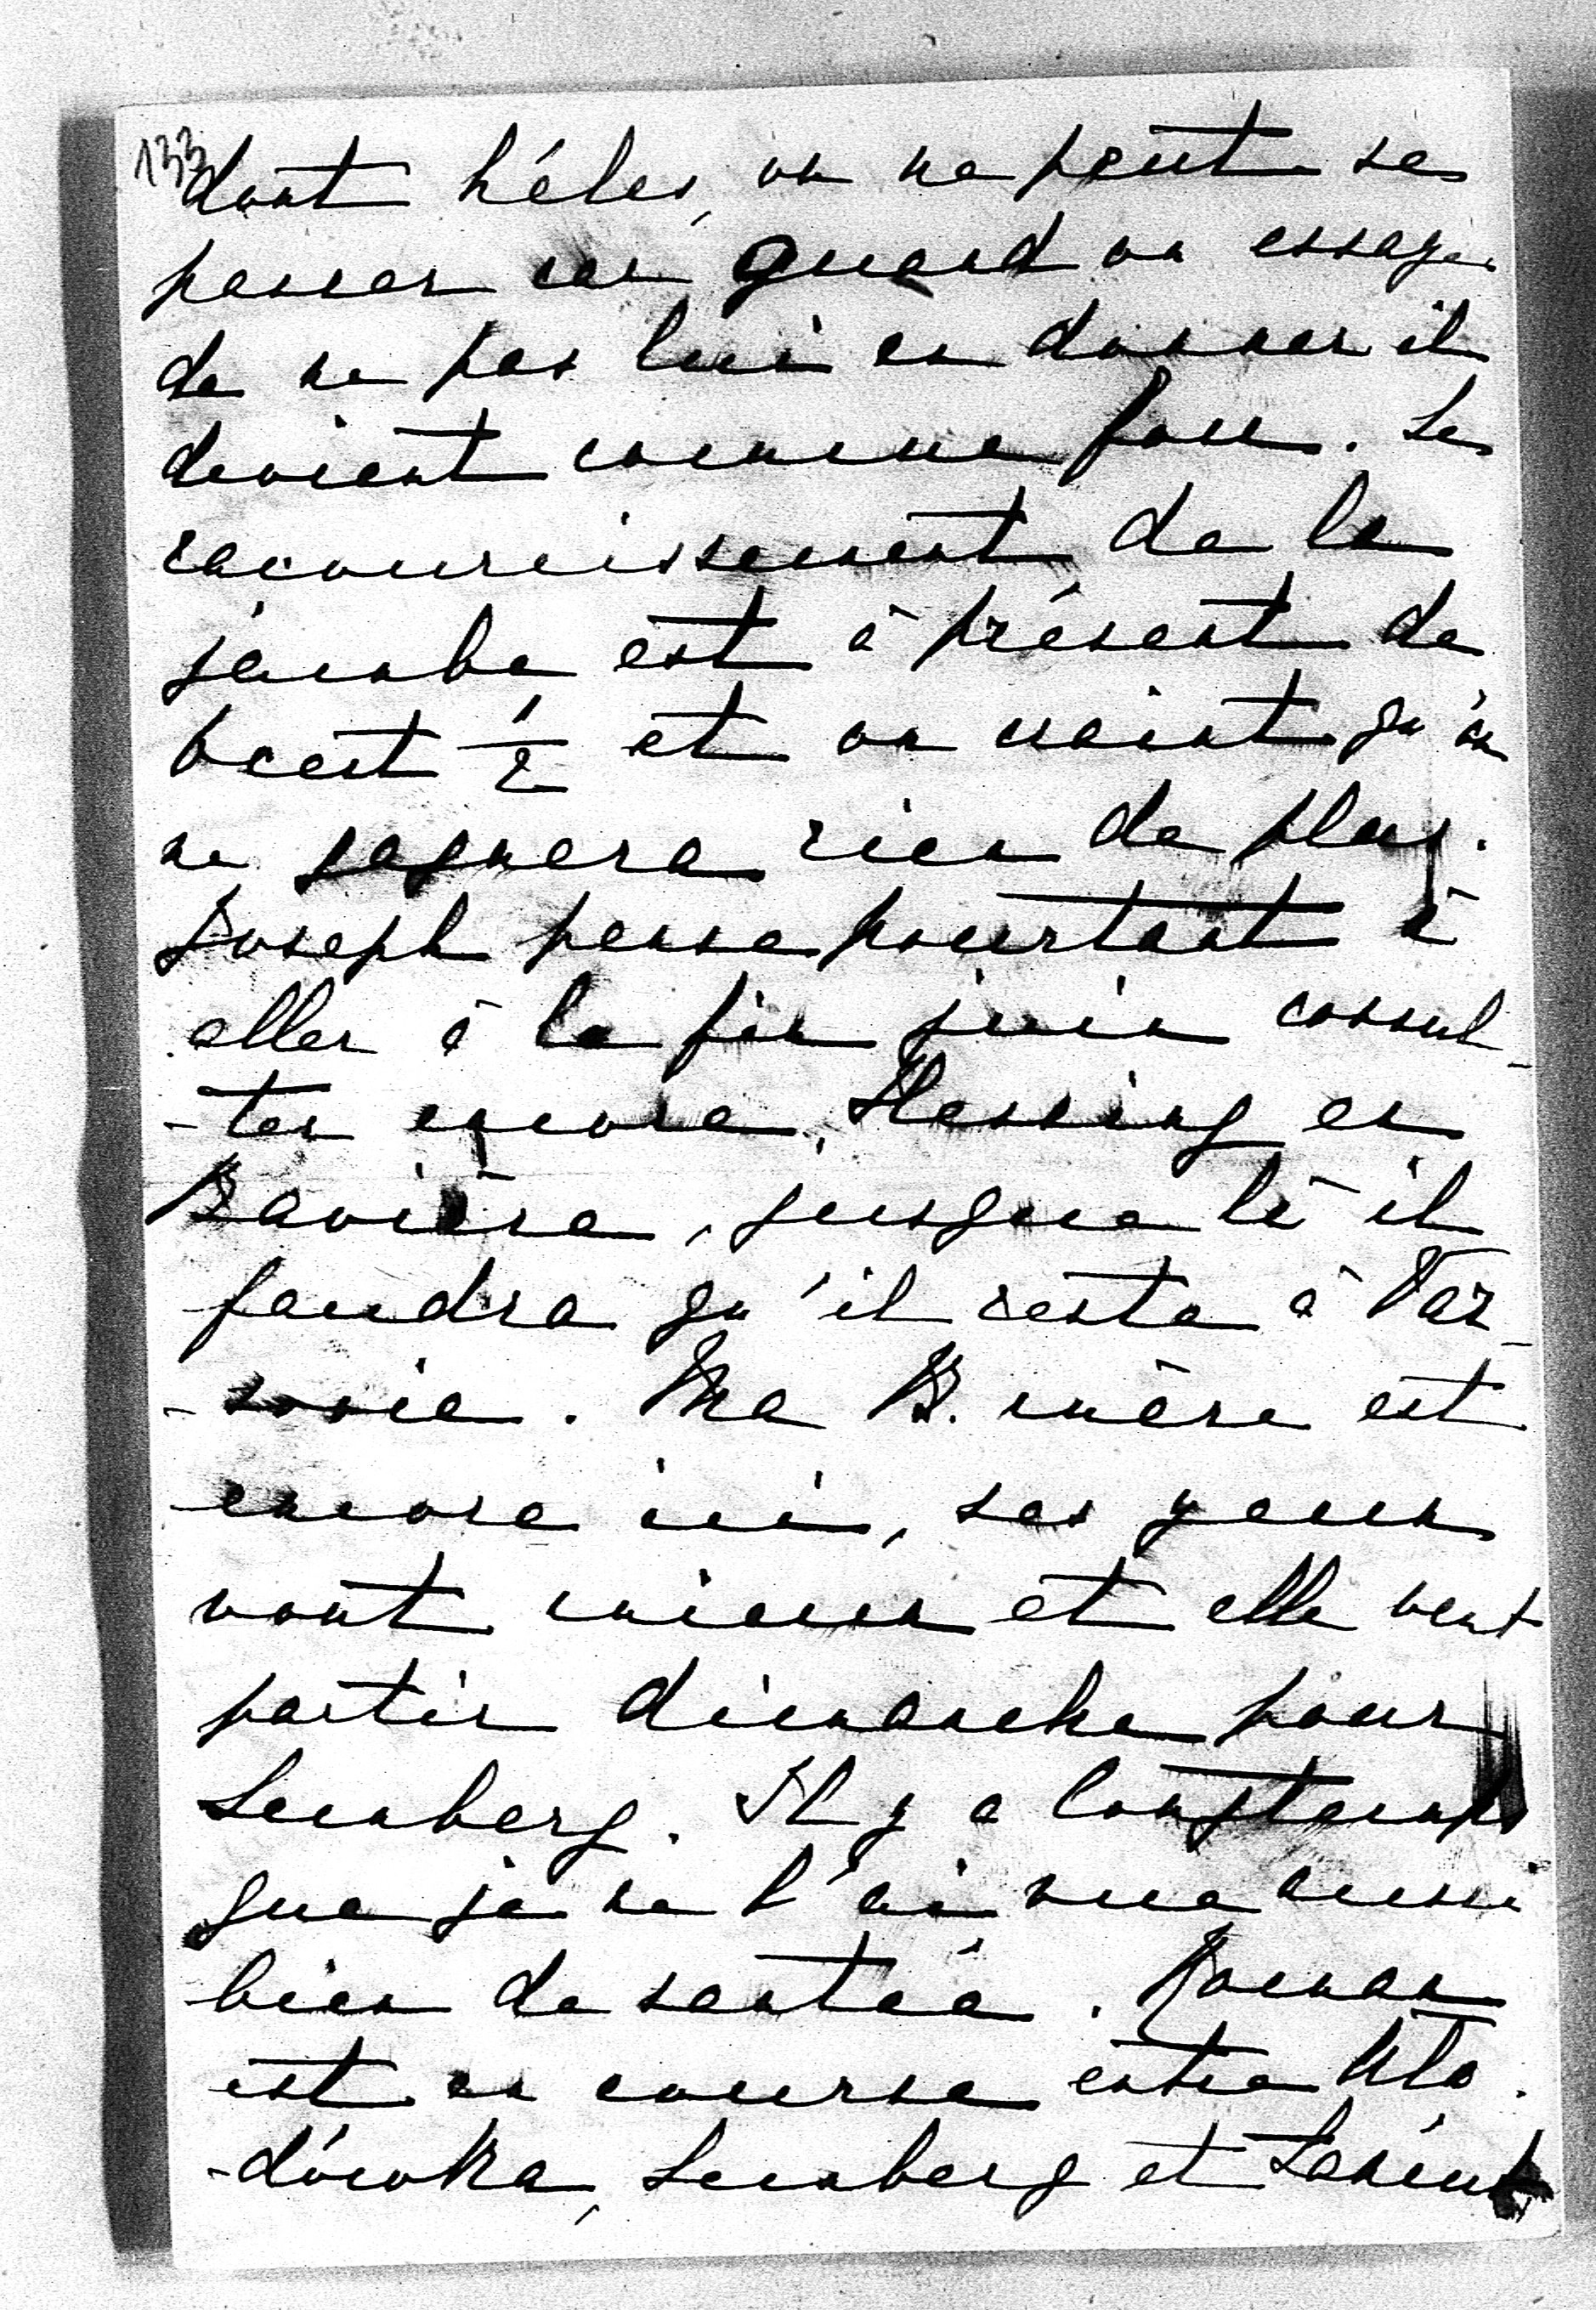 133
dont hélas, on ne peut se
passer car quand on essaye
de ne pas lui en donner il
devient comme fou. Le
racourcissement de la
jambe est à présent de
6 cent 1/2 et on craint qu'on
ne gagnera rien de plus.
Joseph pense pourtant à
aller à la fin juin consul-
-ter encore, Hessing en
Bavière, jusque là il
faudra qu'il reste à Var-
-sovie. Ma B. mère est
encore ici, ses yeux
vont mieux et elle veut
partir dimanche pour
Lemberg. Il y a longtemps
que je ne l'ai vue aussi
bien de santée. Roman
est en course entre Mło-
-dówka, Lemberg et Łańcut